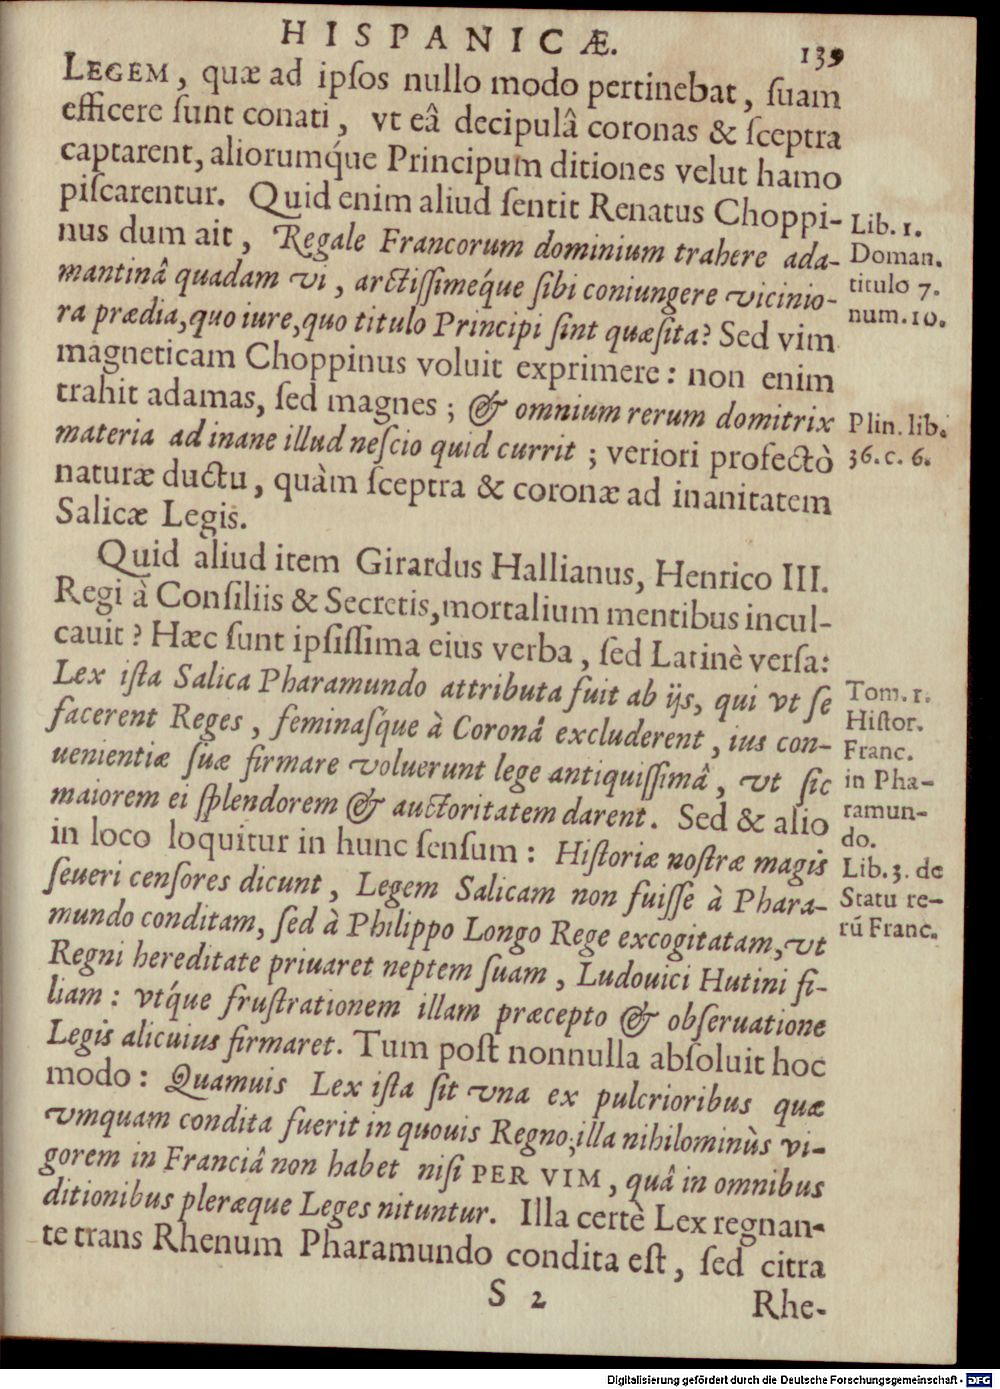 HISPANICÆ. 139
LEGEM, quæ ad ipſos nullo modo pertinebat, ſuam
efficere ſunt conati, vt eâ decipulâ coronas & ſceptra
captarent, aliorumq́ue Principum ditiones velut hamo
piſcarentur. Quid enim aliud ſentit Renatus Choppi-
nus dum ait, Regale Francorum dominium trahere ada-
mantinâ quadam vi, arctiſſimeq́ue ſibi coniungere vicinio-
ra prædia, quo iure, quo titulo Principi ſint quæſita? Sed vim
magneticam Choppinus voluit exprimere: non enim
trahit adamas, ſed magnes; & omnium rerum domitrix
materia ad inane illud neſcio quid currit; veriori profectò
naturæ ductu, quàm ſceptra & coronæ ad inanitatem
Salicæ Legis.
Lib. 1.
Doman.
titulo 7.
num. 10.
Plin. lib.
36. c. 6.
Quid aliud item Girardus Hallianus, Henrico III.
Regi à Conſiliis & Secretis, mortalium mentibus incul-
cauit? Hæc ſunt ipſiſſima eius verba, ſed Latinè verſa:
Lex iſta Salica Pharamundo attributa fuit ab ijs, qui vt ſe
facerent Reges, feminaſque à Coronâ excluderent, ius con-
uenientiæ ſuæ firmare voluerunt lege antiquiſſimâ, vt ſic
maiorem ei ſplendorem & auctoritatem darent. Sed & alio
in loco loquitur in hunc ſenſum: Hiſtoriæ noſtræ magis
ſeueri cenſores dicunt, Legem Salicam non fuiſſe à Phara-
mundo conditam, ſed à Philippo Longo Rege excogitatam, vt
Regni hereditate priuaret neptem ſuam, Ludouici Hutini fi-
liam: vtq́ue fruſtrationem illam præcepto & obſeruatione
Legis alicuius firmaret. Tum poſt nonnulla abſoluit hoc
modo: Quamuis Lex iſta ſit vna ex pulcrioribus quæ
vmquam condita fuerit in quouis Regno; illa nihilominùs vi-
gorem in Franciâ non habet niſi PER VIM, quâ in omnibus
ditionibus pleræque Leges nituntur. Illa certè Lex regnan-
te trans Rhenum Pharamundo condita eſt, ſed citra
Tom. 1.
Hiſtor.
Franc.
in Pha-
ramun-
do.
Lib. 3. de
Statu re-
rū Franc.
S 2 Rhe-
Digitalisierung gefördert durch die Deutsche Forschungsgemeinschaft - DFG